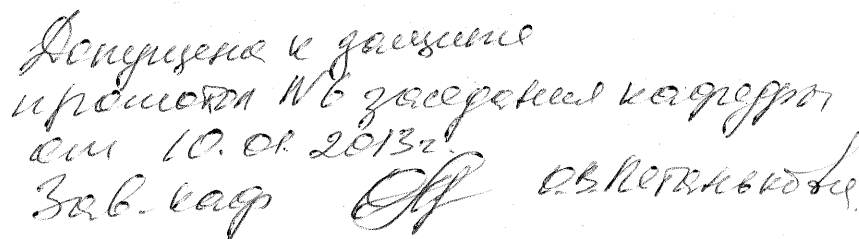 Допущена к защите
протокол №6 заседания кафедры
от 10.01.2013г.
Зав. каф О.В.Петанькова